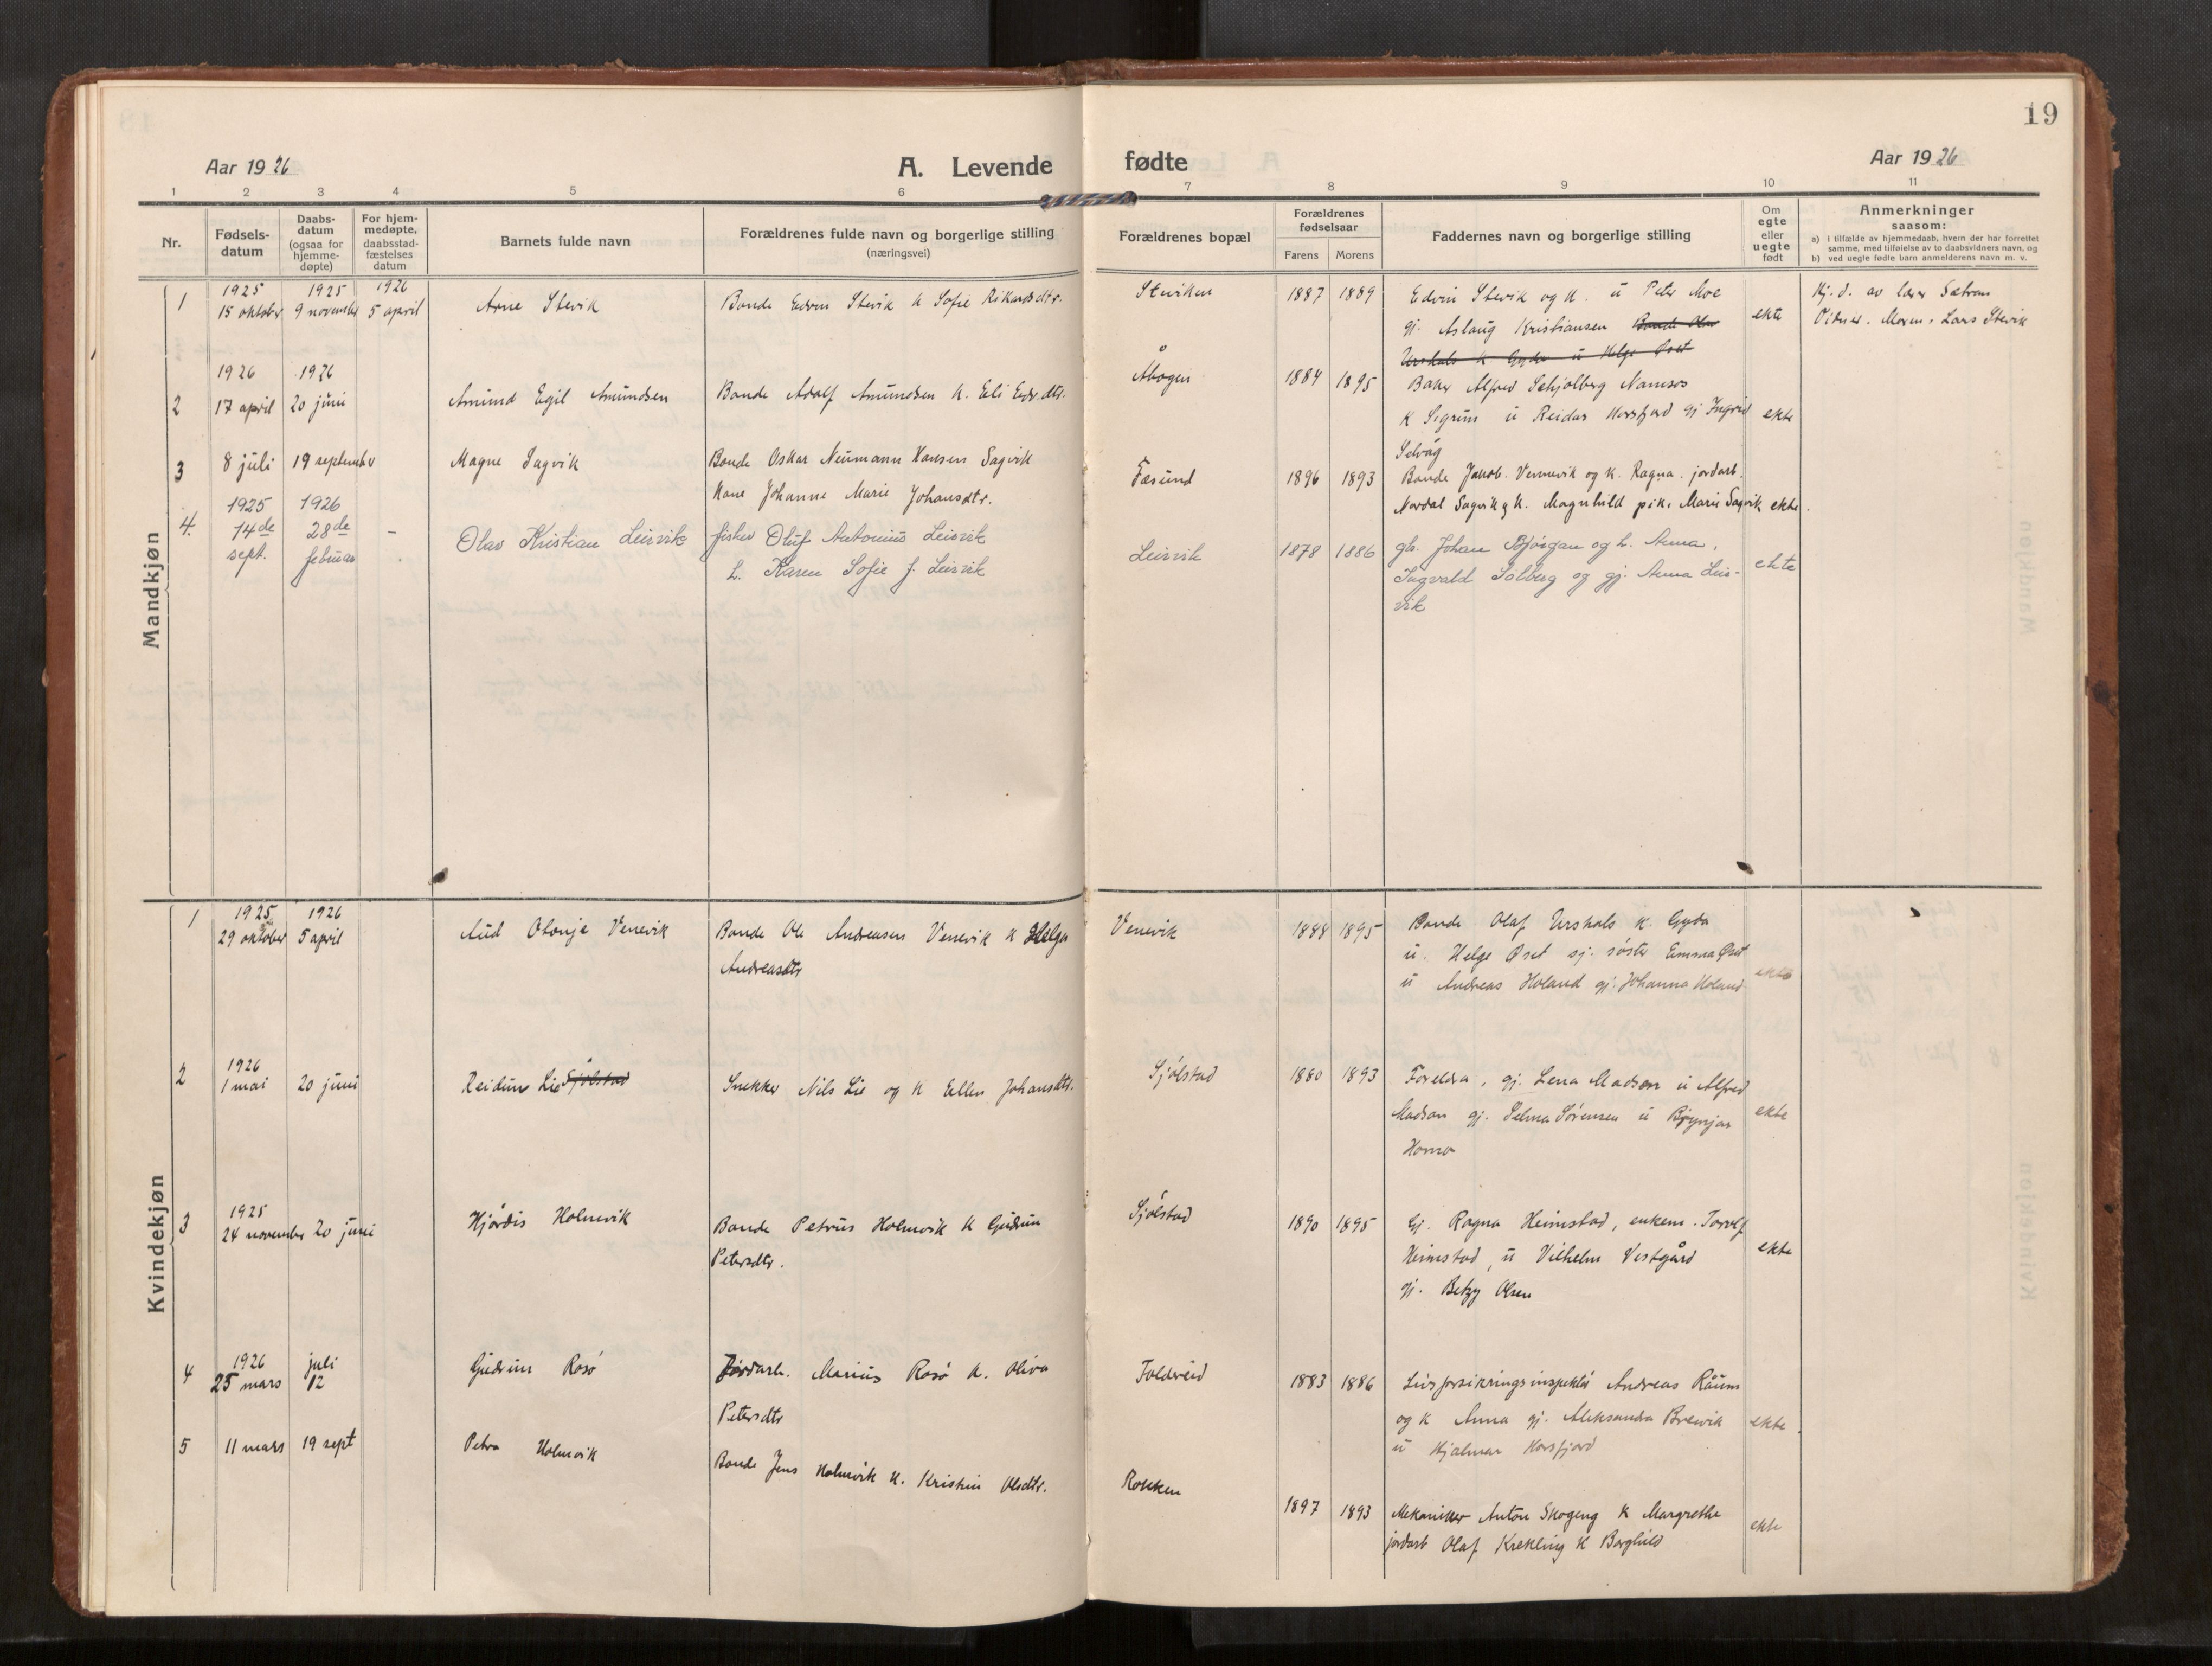 19
Aar 1926
A. Levende
fødte
Aar 1926
1 2 3 4 5 6 7 8 9 10 11
Nr.
Fødsels-
datum
Daabs-
datum
(ogsaa for
hjemme-
døpte)
For hjem-
medøpte,
daabsstad-
fæstelses
datum
Barnets fulde navn
Forældrenes fulde navn og borgerlige stilling
(næringsvei)
Forældrenes bopæl
Forældrenes
fødselsaar
Farens
Morens
Faddernes navn og borgerlige stilling
Om
egte
eller
uegte
født
Anmerkninger
saasom:
a) i tilfælde av hjemmedaab, hvem der har forrettet
samme, med tilføielse av to daabsvidners navn, og
b) ved uegte fødte barn anmelderens navn m. v.
Mandkjøn
1
1925
15 oktober
1925
9 november
1926
5 april
Arne Stevik
Bonde Edvin Stevik K Sofie Rikardsdtr.
Steviken
1887
1889
Edvin Stevik og K. u Peter Moe
gj. Aslaug Kristiansen Bonde Olav
Urshals K Gyda u Helge Øset
ekte
Hj. d. av lærer Sætran
Vidner. Moren, Lars Stevik
2
1926
17 april
1926
20 juni
Amund Egil Amundsen
Bonde Adolf Amundsen K. Eli Edv.dtr.
Åbogen
1884
1895
Baker Alfred Schjølberg Namsos
K Sigrun u Reidar Horsfjord gj Ingrid
Selvåg
ekte
3
8 juli
19 september
Magne Sagvik
Bonde Oskar Neumann Hansen Sagvik
Kone Johanne Marie Johansdtr.
Fæsund
1896
1893
Bonde Jakob Vennevik og K. Ragna. jordarb.
Nordal Sagvik og K. Magnhild pike Marie Sagvik
ekte.
4.
1925
14de
sept.
1926
28de
februar
-
Olav Kristian Leirvik
fisker Oluf Antonius Leirvik
h. Karen Sofie f. Leirvik
Leirvik
1878
1886
gb. Johan Bjørgan og h. Anna,
Ingvald Solberg og gj. Anna Leir-
vik
ekte
Kvindekjøn
1
1925
29 oktober
1926
5 april
Aud Otonje Venevik
Bonde Ole Andreasen Venevik K Helga
Andreasdtr
Venevik
1888
1895
Bonde Olaf Urshals K. Gyda
u. Helge Øset sj. søster Emma Øset
u Andreas Holand gj. Johanna Holand
ekte
2
1926
1 mai
20 juni
Reidun Lie Sjølstad
Snekker Nils Lie og K Ellen Johansdtr.
Sjølstad
1880
1893
Foreldra, gj. Lena Madsen u Alfred
Madsen gj. Selma Sørensen u Brynjar
Homo
ekte
3
1925
24 november
20 juni
Hjørdis Holmvik
Bonde Petrus Holmvik K Gudrun
Petersdtr.
Sjølstad
1890
1895
Gj. Ragna Heimstad, enkem. Torolf
Heimstad, u Vilhelm Vestgård
gj. Betzy Olsen
ekte
4
1926
25 mars
juli
12
Gudrun Rosø
Jordarb. Marius Rosø K. Oliva
Petersdtr
Foldereid
1883
1886
Livsforsikringsinspektør Andreas Raum
og K Anna gj. Aleksandra Breivik
u Hjalmar Horsfjord
ekte.
5
11 mars
19 sept
Petra Holmvik
Bonde Jens Holmvik K. Kristine Olsdtr.
Rokken
1897
1893
Mekaniker Anton Skogeng K Margrethe
jordarb Olaf Krekling K Borghild
ekte